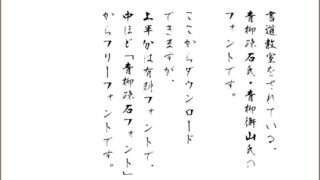 書道教室をされている、
青柳疎石氏・青柳衡山氏の
フォントです。
ここからダウンロード
できますが、
上半分は有料フォントで、
中ほど「青柳疎石フォント」
からフリーフォントです。